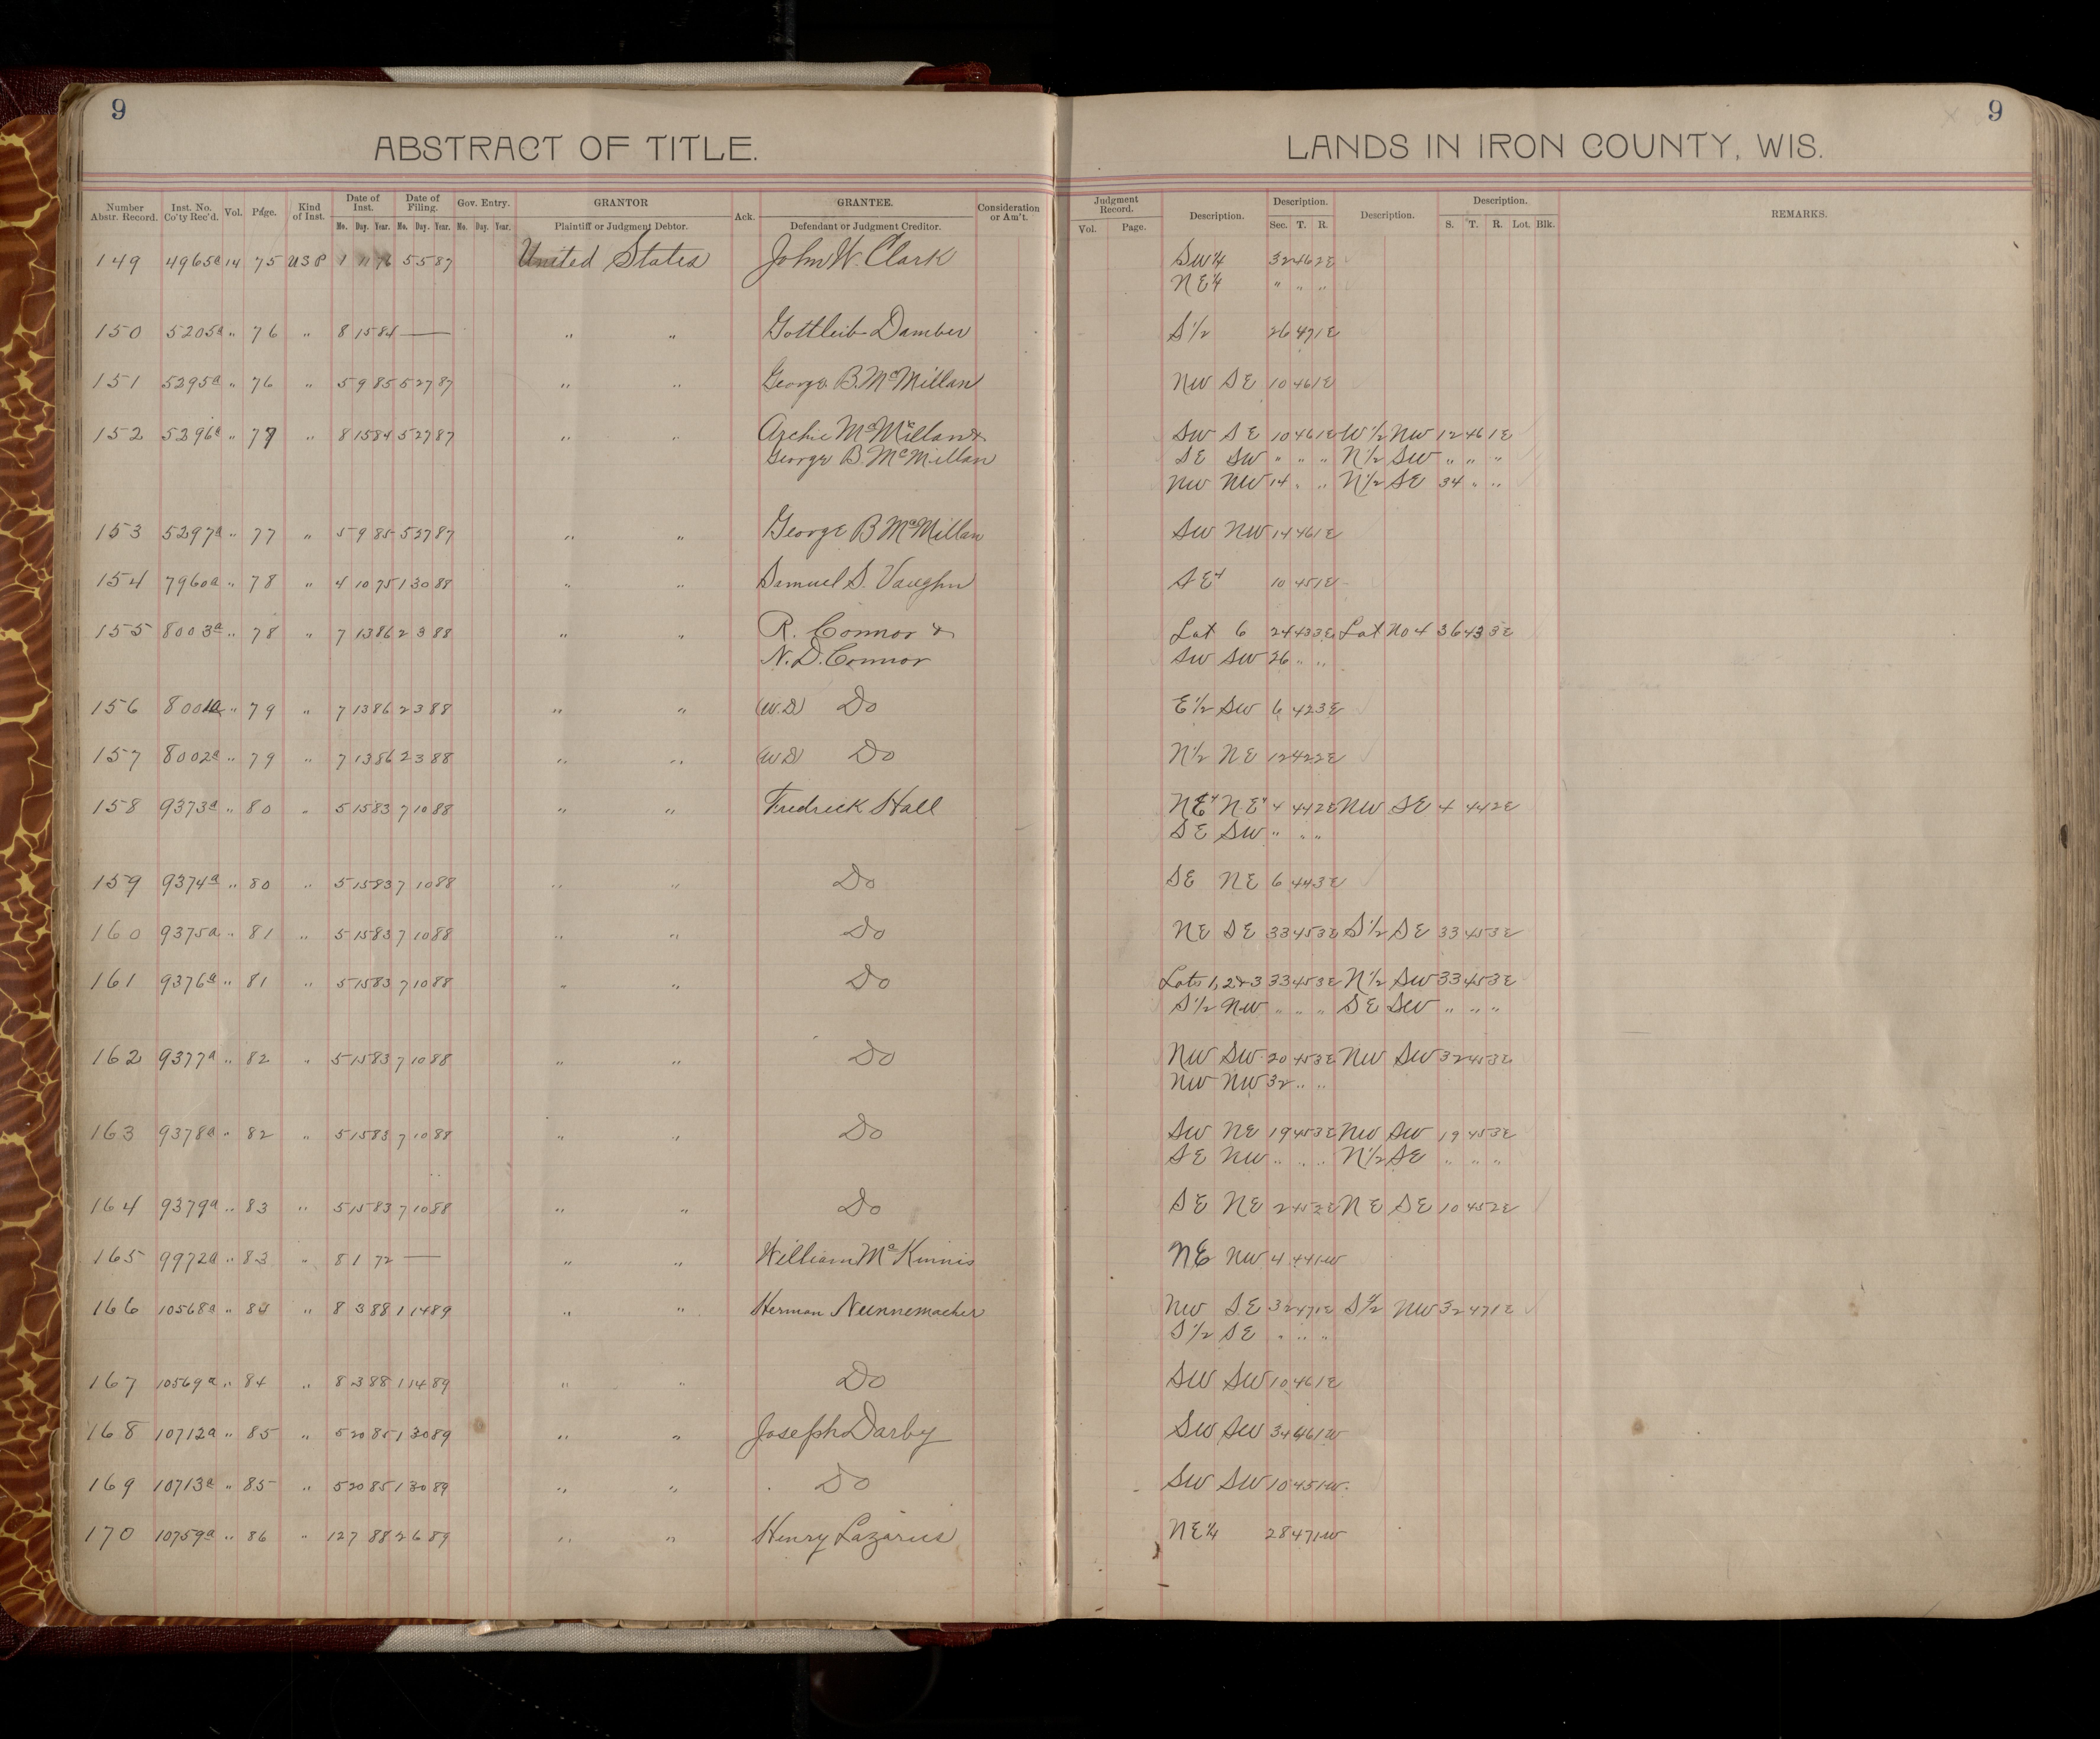 9
ABSTRACT OF TITLE.
Number Abstr. Record. Inst. No. Co'ty Rec'd. Vol. Page. Kind of Inst. Date of Inst. Date of Filing. Gov. Entry. GRANTOR Ack. GRANTEE. Consideration or Am't.
Mo. Day. Year. Mo. Day. Year. Mo. Day. Year. Plaintiff or Judgment Debtor. Defendant or Judgment Creditor.
149 4965a 14 75 USP 5 5 87 United States John W. Clark
150 5205a " 76 " 8 15 84 — " " Gottleib Damber
151 5295a " 76 " 5 9 85 5 27 87 " " George B. McMillan
152 5296a " 77 " 8 15 84 5 27 87 " " Archie McMillan &
George B. McMillan
153 5297a " 77 " 5 9 85 5 27 87 " " George B McMillan
154 7960a " 78 " 4 10 75 1 30 88 " " Samuel S. Vaughn
155 8003a " 78 " 7 13 86 2 3 88 " " R. Connor &
N. D. Connor
156 8001a " 79 " 7 13 86 2 3 88 " " (W.D) Do
157 8002a " 79 " 7 13 86 2 3 88 " " (W D) Do
158 9373a " 80 " 5 15 83 7 10 88 " " Fredrick Hall
159 9374a " 80 " 5 15 83 7 10 88 " " Do
160 9375a " 81 " 5 15 83 7 10 88 " " Do
161 9376a " 81 " 5 15 83 7 10 88 " " Do
162 9377a " 82 " 5 15 83 7 10 88 " " Do
163 9378a " 82 " 5 15 83 7 10 88 " " Do
164 9379a " 83 " 5 15 83 7 10 88 " " Do
165 9972a " 83 " 8 1 72 — " " William McKinnis
166 10568a " 84 " 8 3 88 1 14 89 " " Herman Nunnemacher
167 10569a " 84 " 8 3 88 1 14 89 " " Do
168 10712a " 85 " 5 20 85 1 30 89 " " Joseph Darby
169 10713a " 85 " 5 20 85 1 30 89 " " Do
170 10759a " 86 " 12 7 88 2 6 89 " " Henry Lazarus
9
LANDS IN IRON COUNTY, WIS.
Judgment Record. Description. Description. Description. Description. REMARKS.
Vol. Page. Sec. T. R. S. T. R. Lot. Blk.
SW 1/4 32 46 2E
NE 1/4 " " "
S 1/2 26 47 1E
NW SE 10 46 1E
SW SE 10 46 1E W 1/2 NW 12 46 1E
SE SW " " " N 1/2 SW " " "
NW NW 14 " " N 1/2 SE 34 " "
SW NW 14 46 1E
SE 4 10 45 1E
Lot 6 24 43 3E Lot No 4 36 43 3E
SW SW 26 " "
E 1/2 SW 6 42 3E
N 1/2 NE 12 42 2E
NE4 NE4 4 44 2E NW SE 4 44 2E
SE SW " " "
SE NE 6 44 3E
NE SE 33 45 3E S 1/2 SE 33 45 3E
Lots 1, 2 & 3 33 45 3E N 1/2 SW 33 45 3E
S 1/2 NW " " " SE SW " " "
NW SW 20 45 3E NW SW 32 45 3E
NW NW 32 " "
SW NE 19 45 3E NW SW 19 45 3E
SE NW " " " N 1/2 SE " " "
SE NE 2 45 2E NE SE 10 45 2E
NE NW 4 44 1W
NW SE 32 47 1E S 1/2 NW 32 47 1E
S 1/2 SE " " "
SW SW 10 46 1E
SW SW 34 46 1W
SW SW 10 45 1W.
NE 1/4 28 47 1W